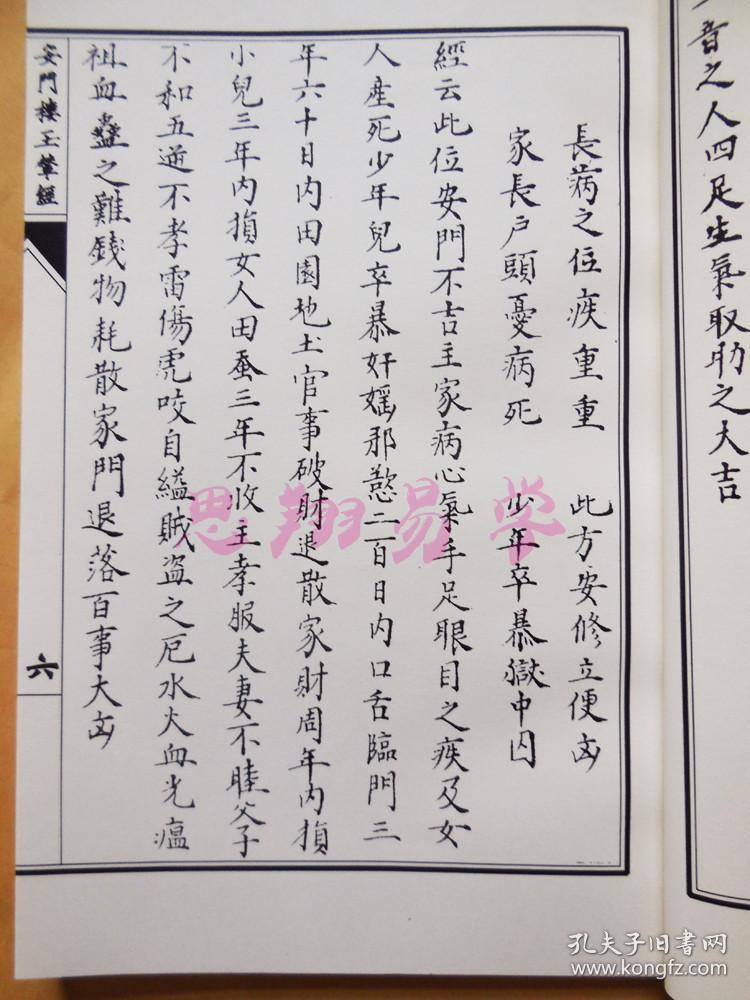 音之人四足生氣取助之大吉
長病之位疾重重 此方安修立便凶
家長户頭憂病死 少年卒暴獄中囚
經云此位安門不吉主家病心氣手足眼目之疾及女
人產死少年兒卒暴奸媱邪慾二百日内口舌臨門三
年六十日内田園地土官事破財退散家財周年内損
小兒三年内損女人田蚕三年不收主孝服夫妻不睦父子
不和五逆不孝雷傷虎咬自縊賊盗之厄水火血光瘟
祖血蠱之難錢物耗散家門退落百事大凶
安門樓玉輦經
六
思翔易学
孔夫子旧书网
www.kongfz.com